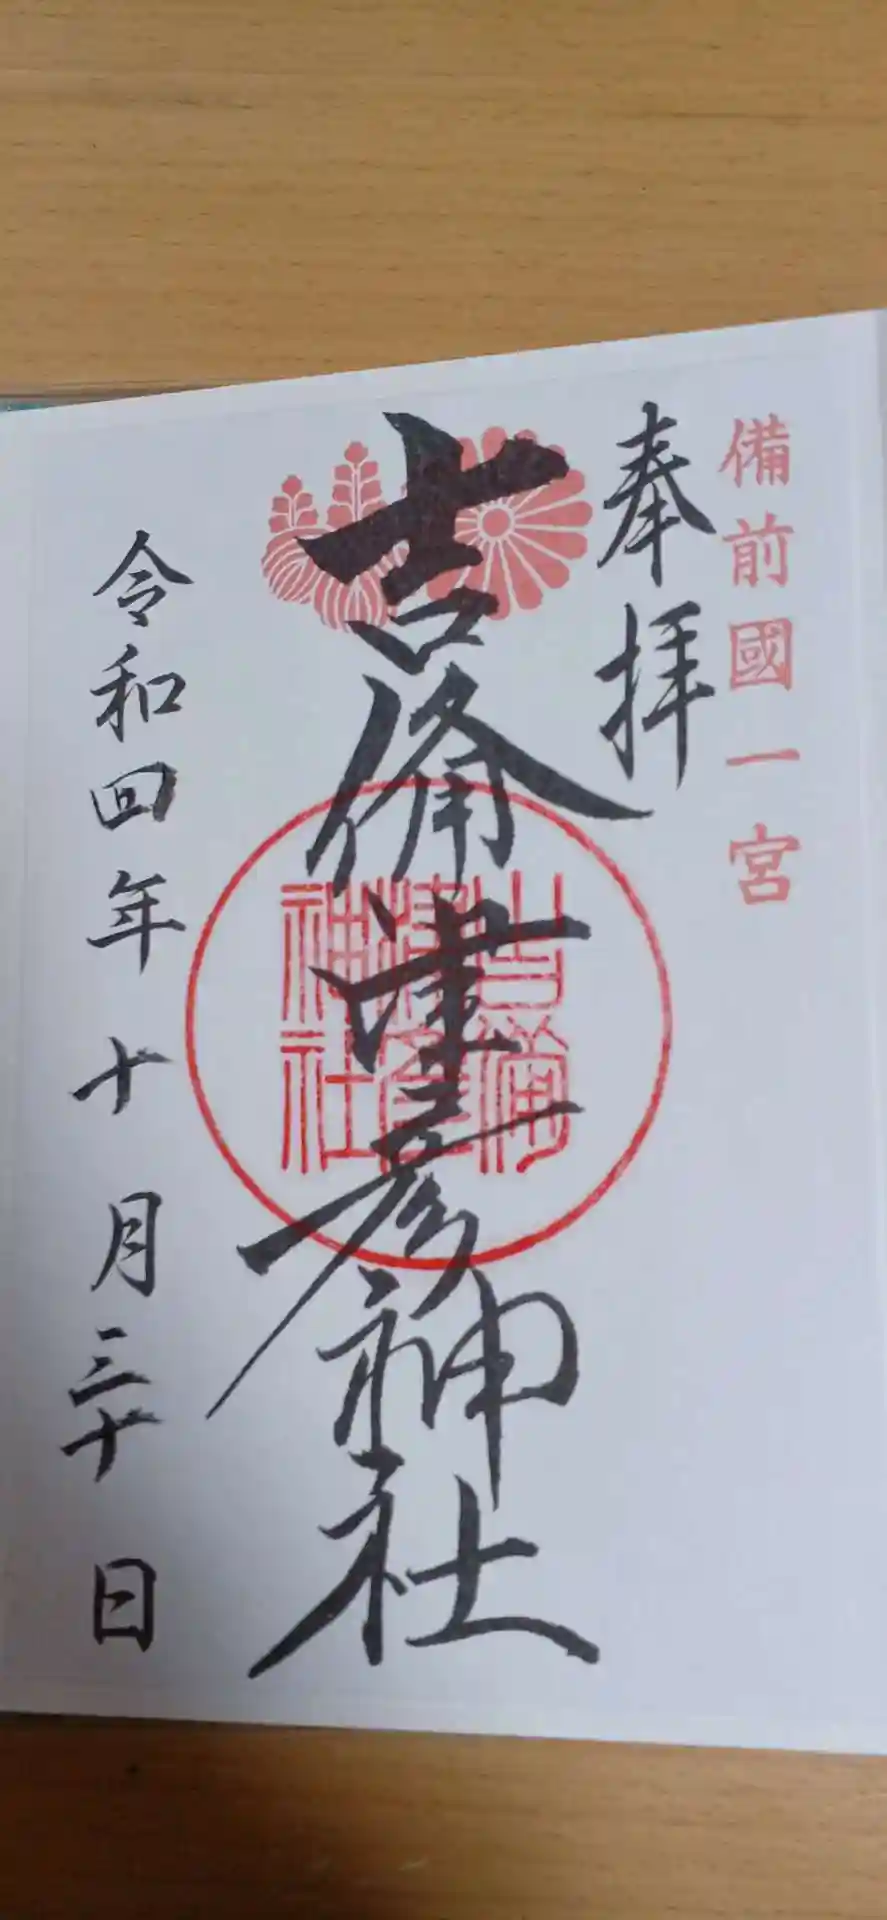 備前國一宮
奉拝
吉備津彦神社
吉備
津彦
神社
令和四年十月三十日